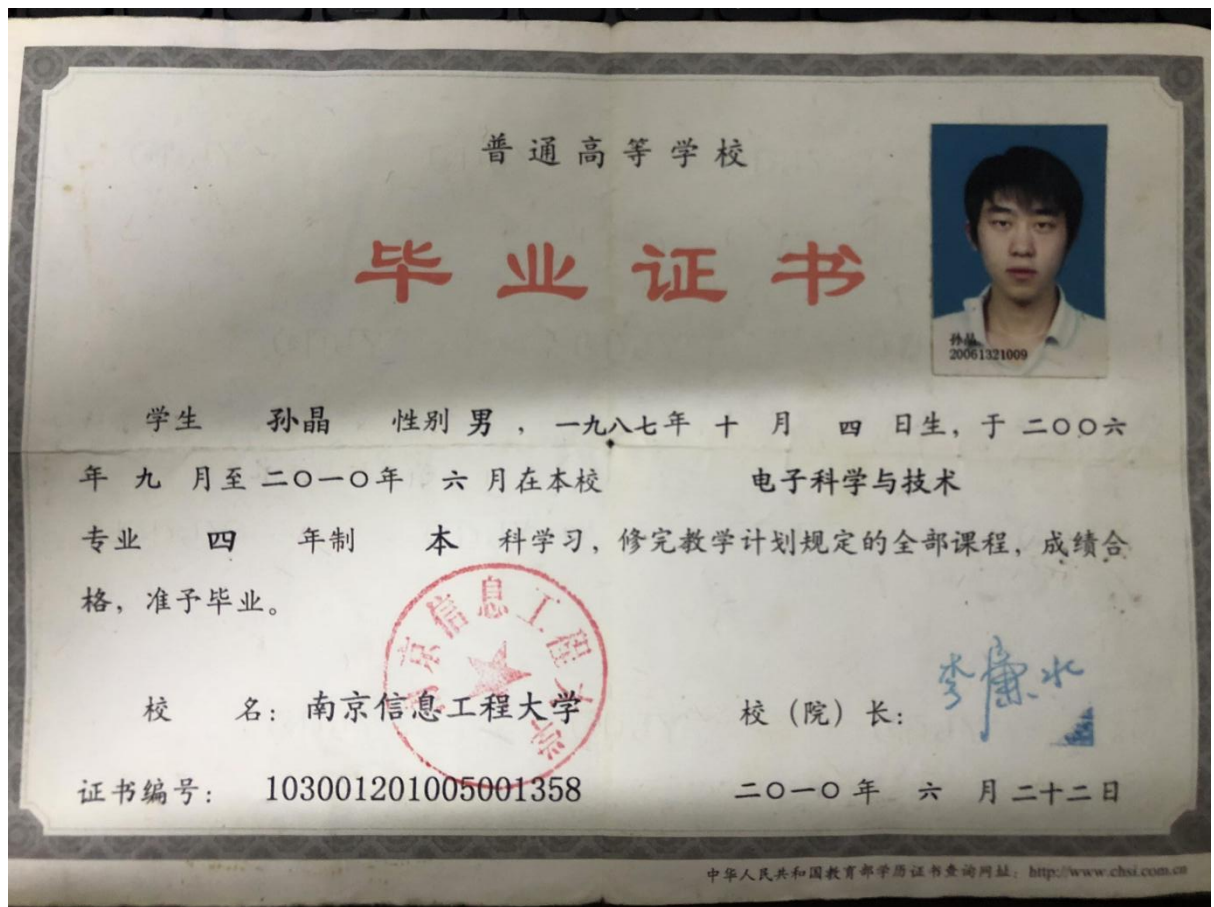 普通高等学校
毕业证书
孙晶
20061321009
学生 孙晶 性别 男 ，一九八七年 十 月 四 日生，于 二〇〇六
年 九 月至 二〇一〇年 六 月在本校 电子科学与技术
专业 四 年制 本 科学习，修完教学计划规定的全部课程，成绩合
格，准予毕业。
南京信息工程大学
校 名：南京信息工程大学 校（院）长：李廉水
证书编号： 103001201005001358 二〇一〇 年 六 月 二十二日
中华人民共和国教育部学历证书查询网址：http://www.chsi.com.cn